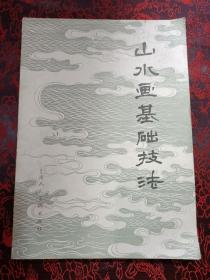 山水画基础技法